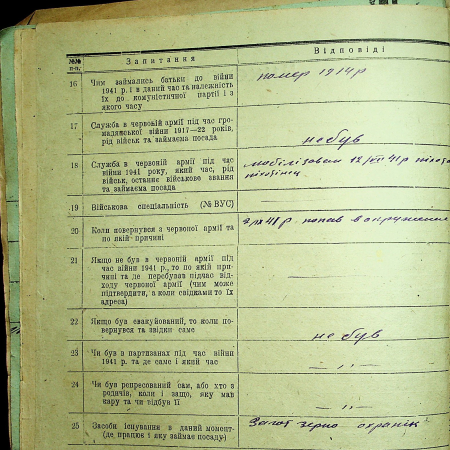 №№ п-п. Запитання Відповіді
16 Чим займались батьки до війни помер 1914 р
1941 р. і в даний час та належність
їх до комуністичної партії і з
якого часу
17 Служба в червоній армії під час гро-
мадянської війни 1917—22 років,
рід військ та займаєма посада не був
18 Служба в червоній армії під час мобілізован 12/VII 41 р
війни 1941 року, який час, рід
військ, останнє військове звання
та займаєма посада
19 Військова спеціальність (№ ВУС) —
20 Коли повернувся з червоної армії та 41 р попав в окружение
по якій причині
21 Якщо не був в червоній армії під
час війни 1941 р., то по якій при-
чині та де перебував підчас від-
ходу червоної армії (чим може
підтвердити, а коли свідками то їх
адреса) —
22 Якщо був евакуйований, то коли по-
вернувся та звідки саме не був
23 Чи був в партизанах під час війни
1941 р. та де саме і який час — „ —
24 Чи був репресований сам, або хто з
родичів, коли і защо, яку мав
кару та чи відбув її — „ —
25 Засоби існування в даний момент Загот зерно охранік
(де працює і яку займає посаду)